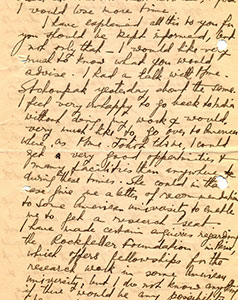 would lose more time.
I have explained all this to you for
you should be kept informed, but
not only that – I would like very
much to know what you would
advise. I had a talk with Mme.
yesterday about the same.
I feel very unhappy to go back to India
without doing my work & would
very much like to go over to America
where, as Mme. told me, I could
get a very good opportunities &
many facilities than anywhere
during these times. She could in that
case give me a letter of recommendation
to some American university to enable
me to get a research seat.
I have made certain enquiries regarding
the Rockfeller Foundation in Paris,
which offers fellowships for the
research work in some American
university, but I do not know anything
if there would be any